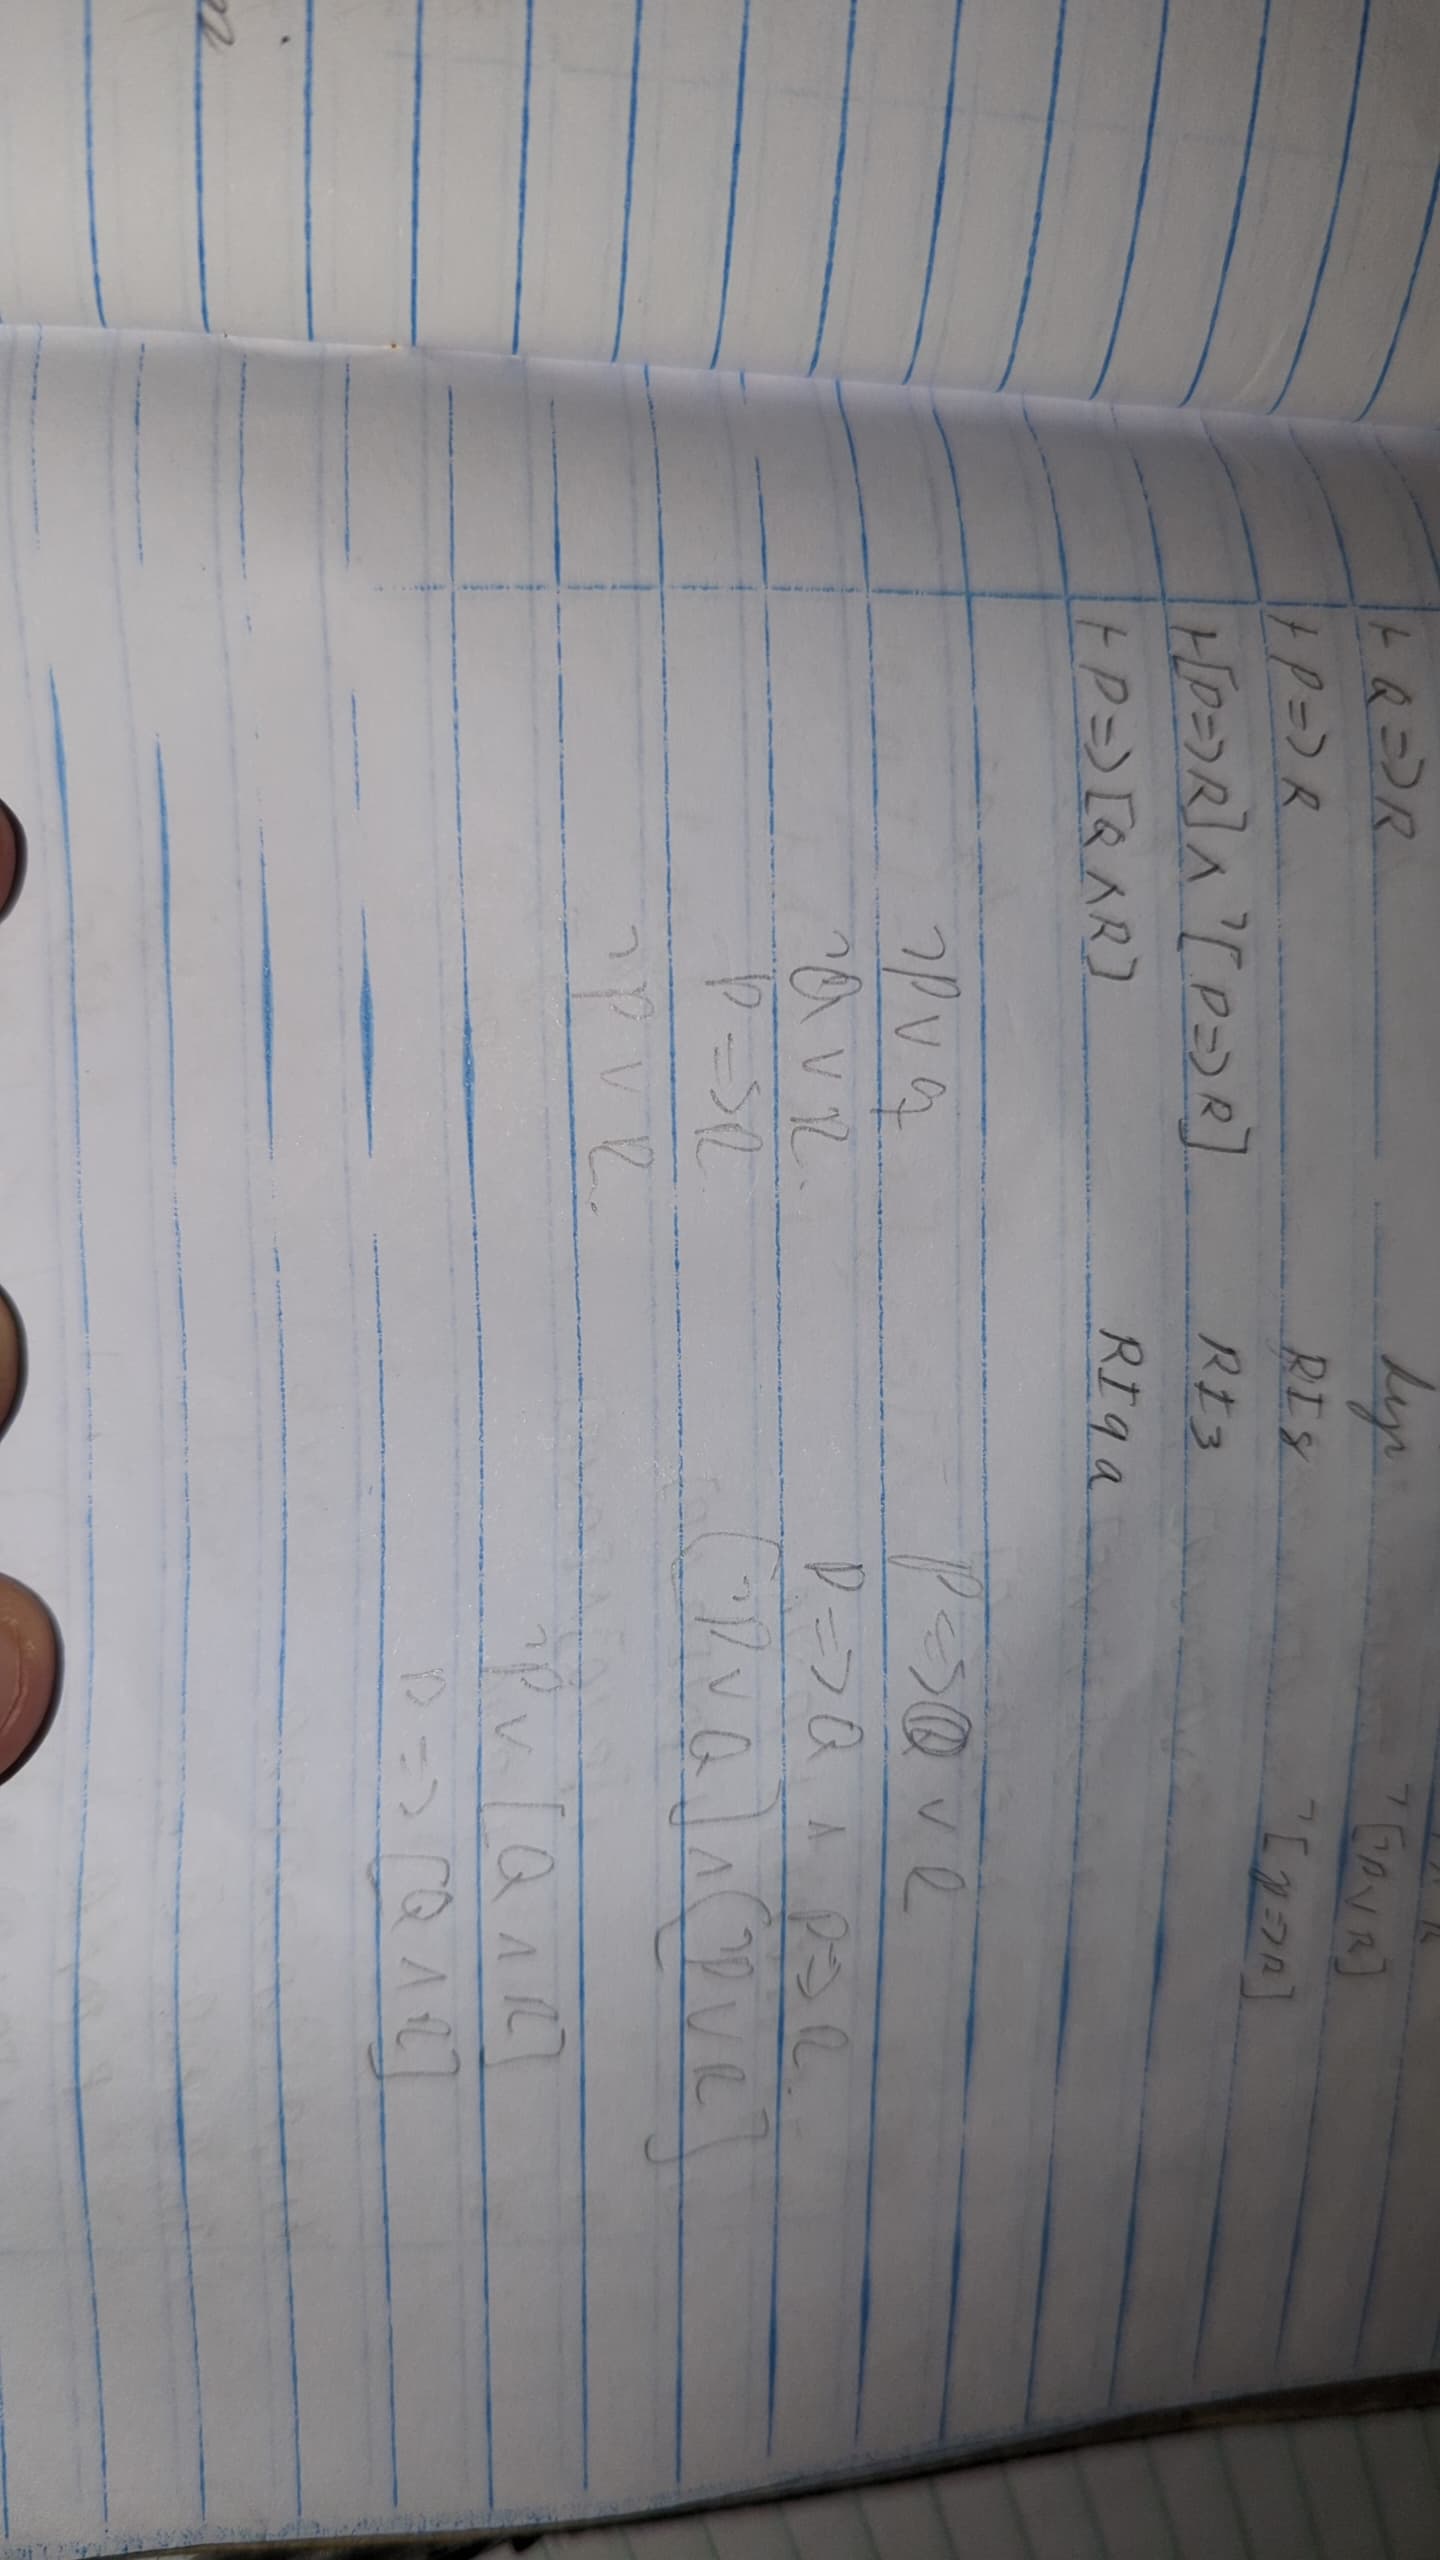 ⊢ Q => R Hyp
¬[¬P ∨ R]
⊢ P => R RI8
¬[P => R]
⊢ [P => R] ∧ ¬[P => R] RI3
⊢ P => [Q ∧ R] RI9a
¬P ∨ q P => Q ∨ R
¬Q ∨ R. P => Q ∧ P => R.
P => R [¬P ∨ Q] ∧ [¬P ∨ R]
¬P ∨ R.
¬P ∨ [Q ∧ R]
P => [Q ∧ R]